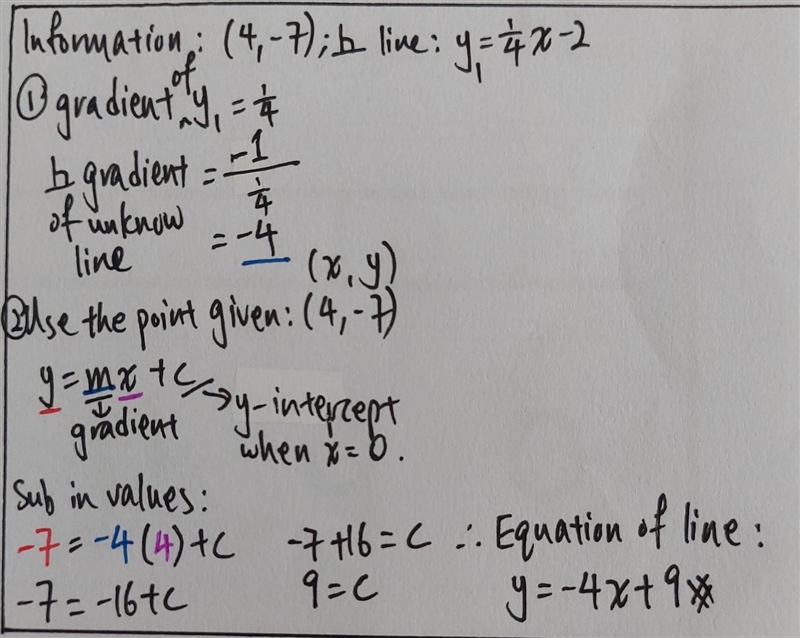 Information: (4,-7); ⊥ line: y₁ = 1/4 x - 2
① gradient of y₁ = 1/4
⊥ gradient = -1 / 1/4
of unknow
line = -4
(x, y)
② Use the point given: (4,-7)
y = mx + c → y-intercept
gradient when x = 0.
Sub in values:
-7 = -4(4) + c -7+16 = c ∴ Equation of line:
-7 = -16 + c 9 = c y = -4x + 9